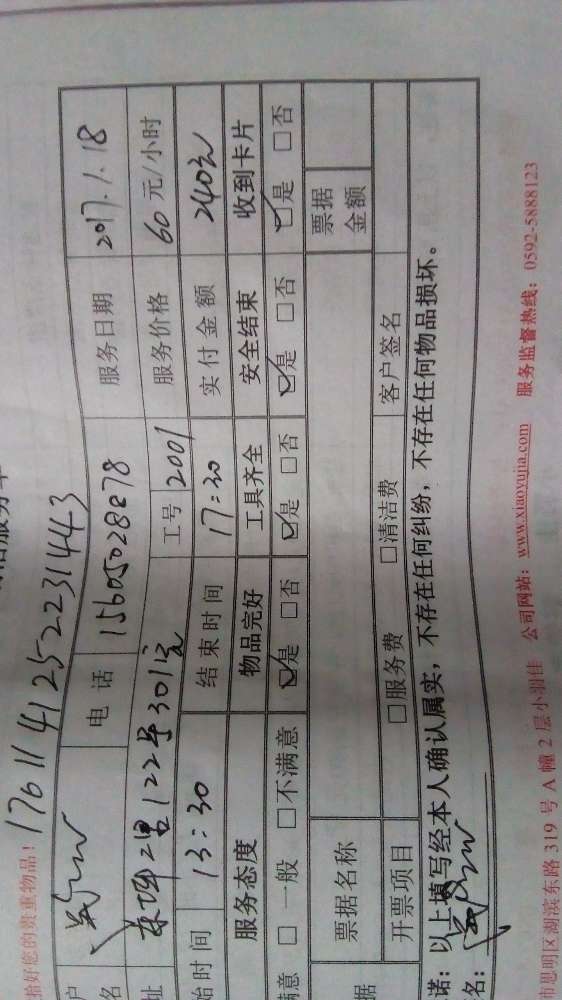 拾好您的贵重物品! 17611412522231443
户名 电话 15605028878 服务日期 2017.1.18
址 122号301室 工号 2001 服务价格 60元/小时
始时间 13:30 结束时间 17:30 实付金额 240元
服务态度 物品完好 工具齐全 安全结束 收到卡片
满意 □一般 □不满意 ☑是 □否 ☑是 □否 ☑是 □否 ☑是 □否
据 票据名称 票据金额
开票项目 □服务费 □清洁费 客户签名
诺:以上填写经本人确认属实,不存在任何纠纷,不存在任何物品损坏。
名:
市思明区湖滨东路 319 号 A 幢 2 层小羽佳 公司网站:www.xiaoyujia.com 服务监督热线:0592-5888123